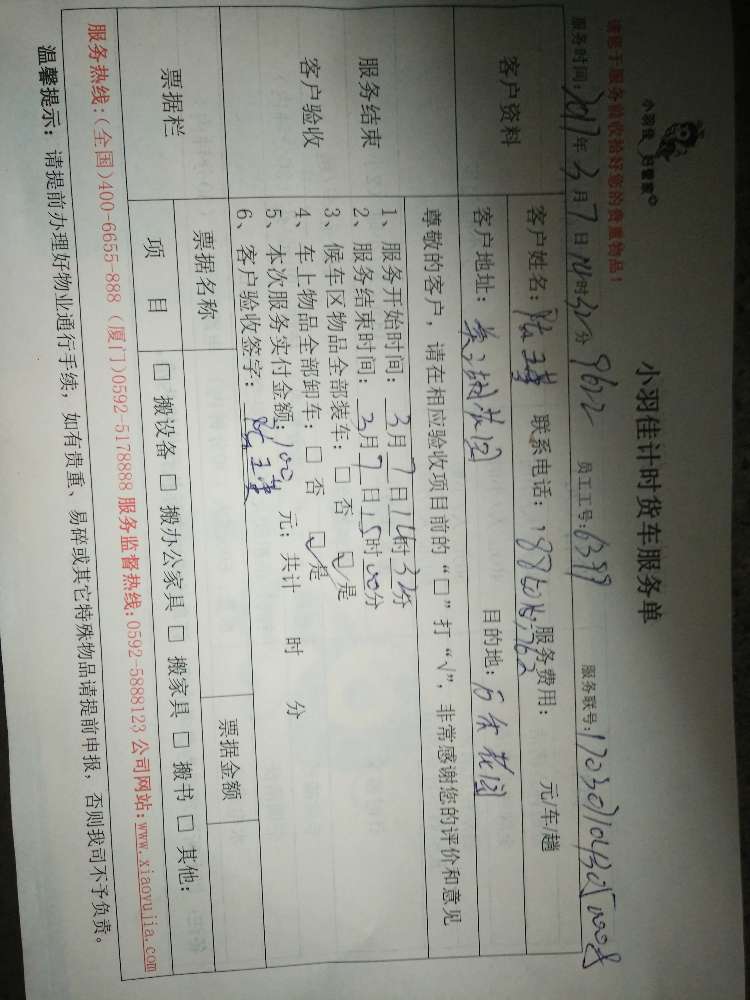 小羽佳 好管家
小羽佳计时货车服务单
请您于服务前收拾好您的贵重物品！
服务时间：2017年3月7日14时32分 9622 员工工号：6399 服务联号：
客户资料
客户姓名： 联系电话： 服务费用： 元/车/趟
客户地址： 目的地：
尊敬的客户，请在相应验收项目前的“□”打“√”，非常感谢您的评价和意见
服务结束
客户验收
1、服务开始时间：3月7日14时32分
2、服务结束时间：3月7日15时00分
3、候车区物品全部装车：□ 否 ☑是
4、车上物品全部卸车：□ 否 ☑是
5、本次服务实付金额：100元；共计 时 分
6、客户验收签字：
票据栏
票据名称 票据金额
项 目 □ 搬设备 □ 搬办公家具 □ 搬家具 □ 搬书 □ 其他：
服务热线：(全国)400-6655-888 (厦门)0592-5178888 服务监督热线：0592-5888123 公司网站：www.xiaoyujia.com
温馨提示：请提前办理好物业通行手续，如有贵重、易碎或其它特殊物品请提前申报，否则我司不予负责。